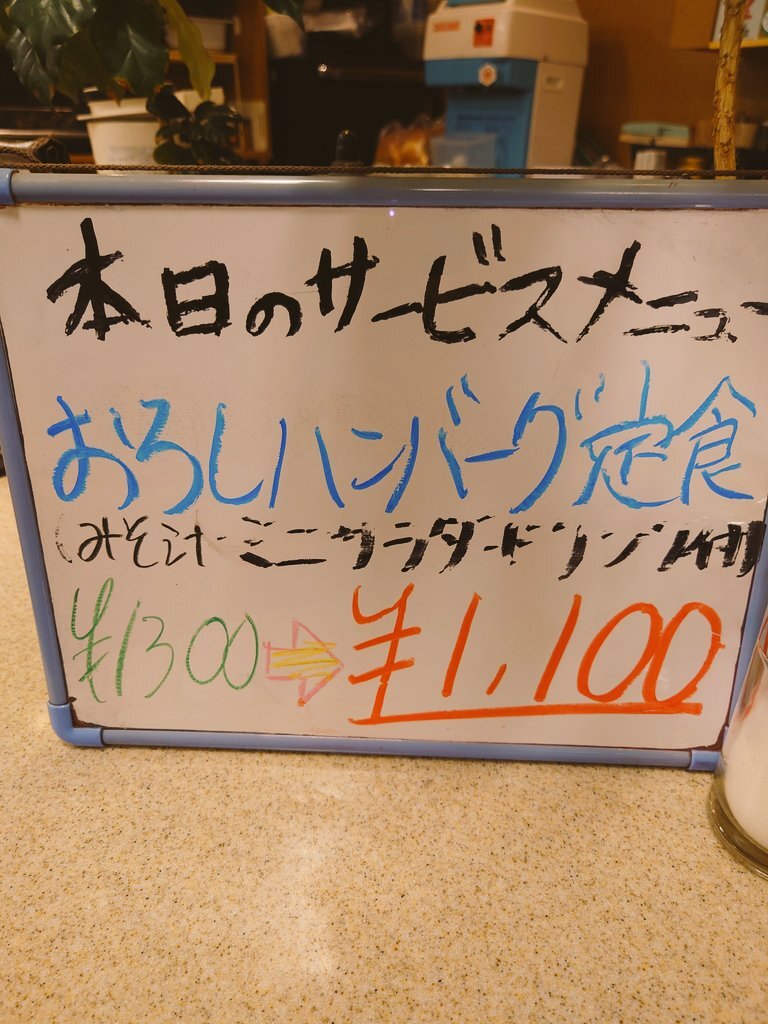 本日のサービスメニュー
おろしハンバーグ定食
(みそ汁・ミニサラダ・ドリンク付)
¥1300 ➡ ¥1,100